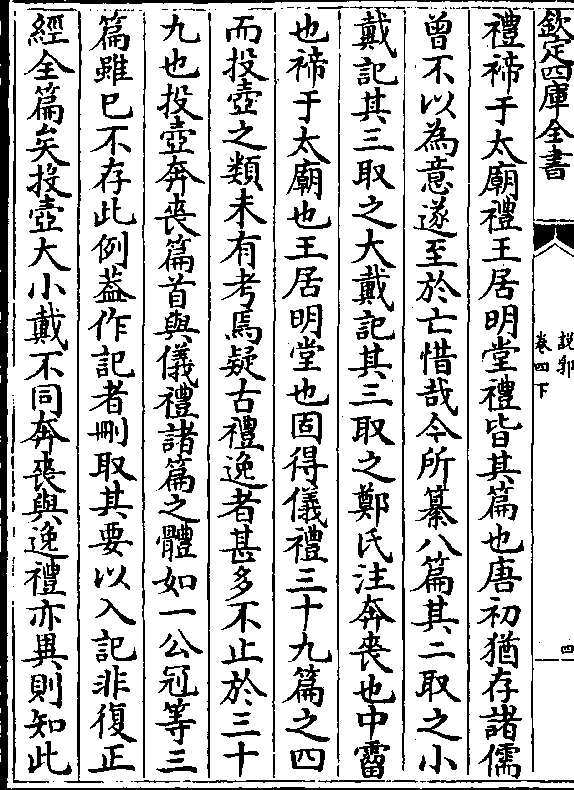 欽定四庫全書
說郛
卷四下
四
禮禘于太廟禮王居明堂禮皆其篇也唐初猶存諸儒
曾不以為意遂至於亡惜哉今所纂八篇其二取之小
戴記其三取之大戴記其三取之鄭氏注奔喪也中霤
也禘于太廟也王居明堂也固得儀禮三十九篇之四
而投壺之類未有考焉疑古禮逸者甚多不止於三十
九也投壺奔喪篇首與儀禮諸篇之體如一公冠等三
篇雖已不存此例葢作記者刪取其要以入記非復正
經全篇矣投壺大小戴不同奔喪與逸禮亦異則知此